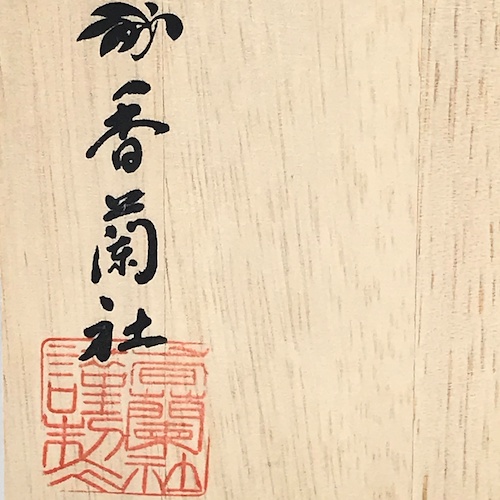 香蘭社
香蘭社
謹製